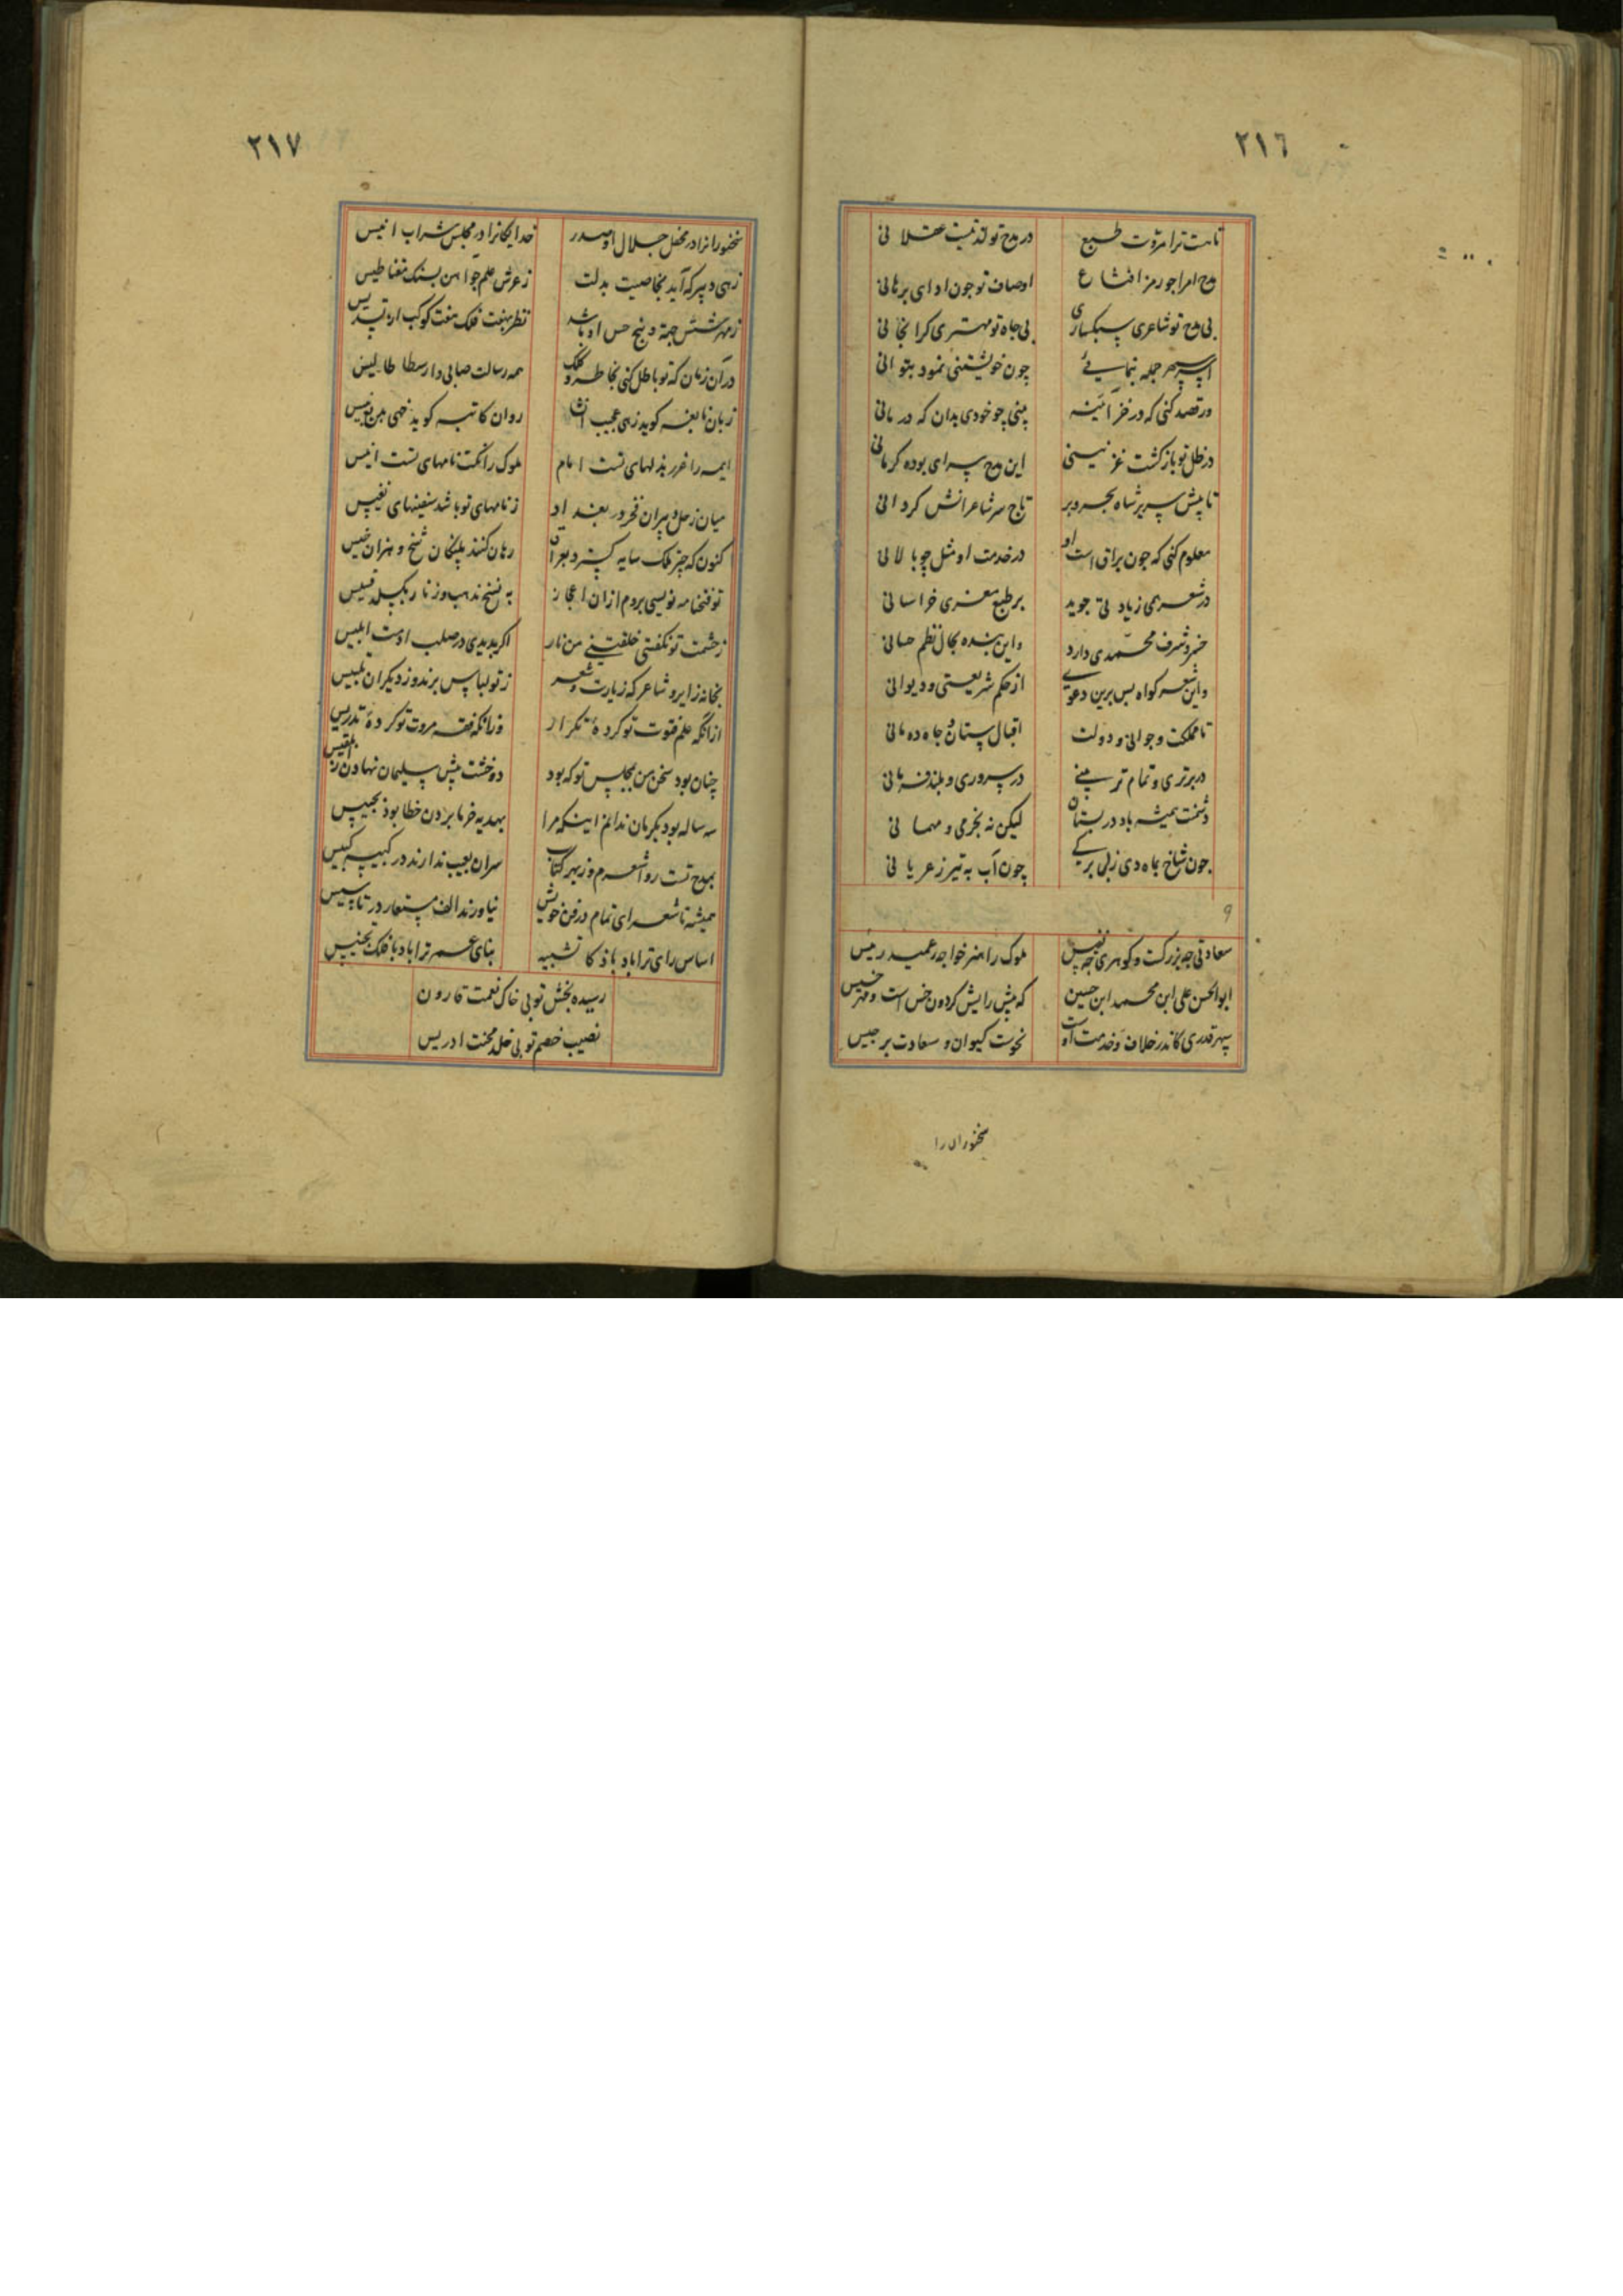 ٢١٦
تا بهت ترا مروت طبع در مدح تو قدتیست عقلانی
مدح امرا جو رمز افشاع اوصاف تو جون ادای برهانی
بی مدح تو شاعری سبکساری بی جاه تو مهتری کرانجانی
چون خویشتنی نمود بتوانی
ور قصد کنی که در خز آئینه بینی چو خودی بدان که در مانی
در ظل تو باز کشت غزنینی این مدح سرای بوده کرمانی
تا پیش سریر شاه بحر و بر تاج سر شاعرانش کردانی
معلوم کنی که جون براق است او در خدمت او مثل چو بالانی
در شعر همی زیادتی جوید بر طبع معزی خراسانی
خسرو شرف محمدی دارد واین بنده بجال نظم حسانی
واین شعر کواه بس برین دعوی از حکم شریعتی و دیوانی
تا مملکت و جوانی و دولت اقبال ستان و جاه ده مانی
در برتری و تمام تر بینی در سروری و بلند فرمانی
دشمنت همیشه باد در بستان لیکن نه بخرمی و مهمانی
جون شاخ بماه دی ز بی برکی چون آب به تیر ز عریانی
٩
سعادتی چه بزرکست و کوهری چه نفیس ملوک را هنر خواجه عمید رییس
ابوالحسن علی ابن محمد ابن حسین که پیش رایش کردون خس است و مهر خسیس
سپهر قدری کاندر خلاف و خدمت اوست نحوست کیوان و سعادت برجیس
سخنوران را
٢١٧
سخنورانرا در محفل جلال او صدر خدایکانرا در مجلس شراب انیس
زهی دبیر که آید بخاصیت بدلت ز عرش علم جو آهن بسنک مغناطیس
ز مهر شش جهة و پنج حس او باشد نظر بهفت فلک هفت کوکب از تسدیس
در آن زمان که تو باطل کنی بخاطر و کلک همه رسالت صابی و ارسطاطالیس
زبان نابغه کوید زهی عجیب روان کاتبه کوید خهی بدیع نویس
ایمه را غرر بذلهای تست امام ملوک را نکت نامهای تست انیس
میان زحل دبیران فخر در بغداد ز نامهای تو باشد سفینهای نفیس
کنون که چتر ملک سایه کسترد بعراق رهان کنند پلنکان شخ و هزبران خیس
تو فتحنامه نویسی بروم از ان اعجاز به نسخ مذهب و زنار بکسلد قسیس
ز حشمت تو نکفتی خلقتنی من نار اکر بدیدی در صلب اوت ابلیس
بخانه زایر و شاعر که زیارت و شعر ز تو لباس برند و ز دیکران تلبیس
ازانکه علم فتوت تو کردهٔ تکرار وزانکه فقه مروت تو کردهٔ تدریس
چنان بود سخن من بمجلس تو که بود دو خشت پیش سلیمان نهادن از بلقیس
سه ساله بود بکرمان ندانم اینکه مرا بهدیه خرما بردن خطا بوذ بجیس
بمدح تست روا شعرم و ز بهر کتاب سران بعیب ندارند در کبیسه کبیس
همیشه تا شعرای تمام در فن خویش نیاورند الف مستعار در تاسیس
اساس رای ترا باد باذکا تشبیه بنای عمر ترا باد با فلک تجنیس
رسیده بخش تو بی خاک نعمت قارون
نصیب خصم تو بی خلد محنت ادریس